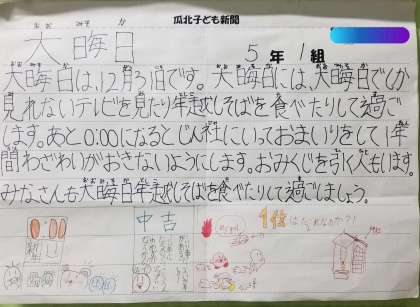 瓜北子ども新聞
大晦日
5年1組
大晦日は、12月31日です。大晦日には、大晦日でしか
見れないテレビを見たり年越しそばを食べたりして過ご
します。あと0:00になるとじん社にいっておまいりをして1年
間わざわいがおきないようにします。おみくじを引く人もいます。
みなさんも大晦日年越しそばを食べたりして過ごしましょう。
中吉
1位はだれなのか?!